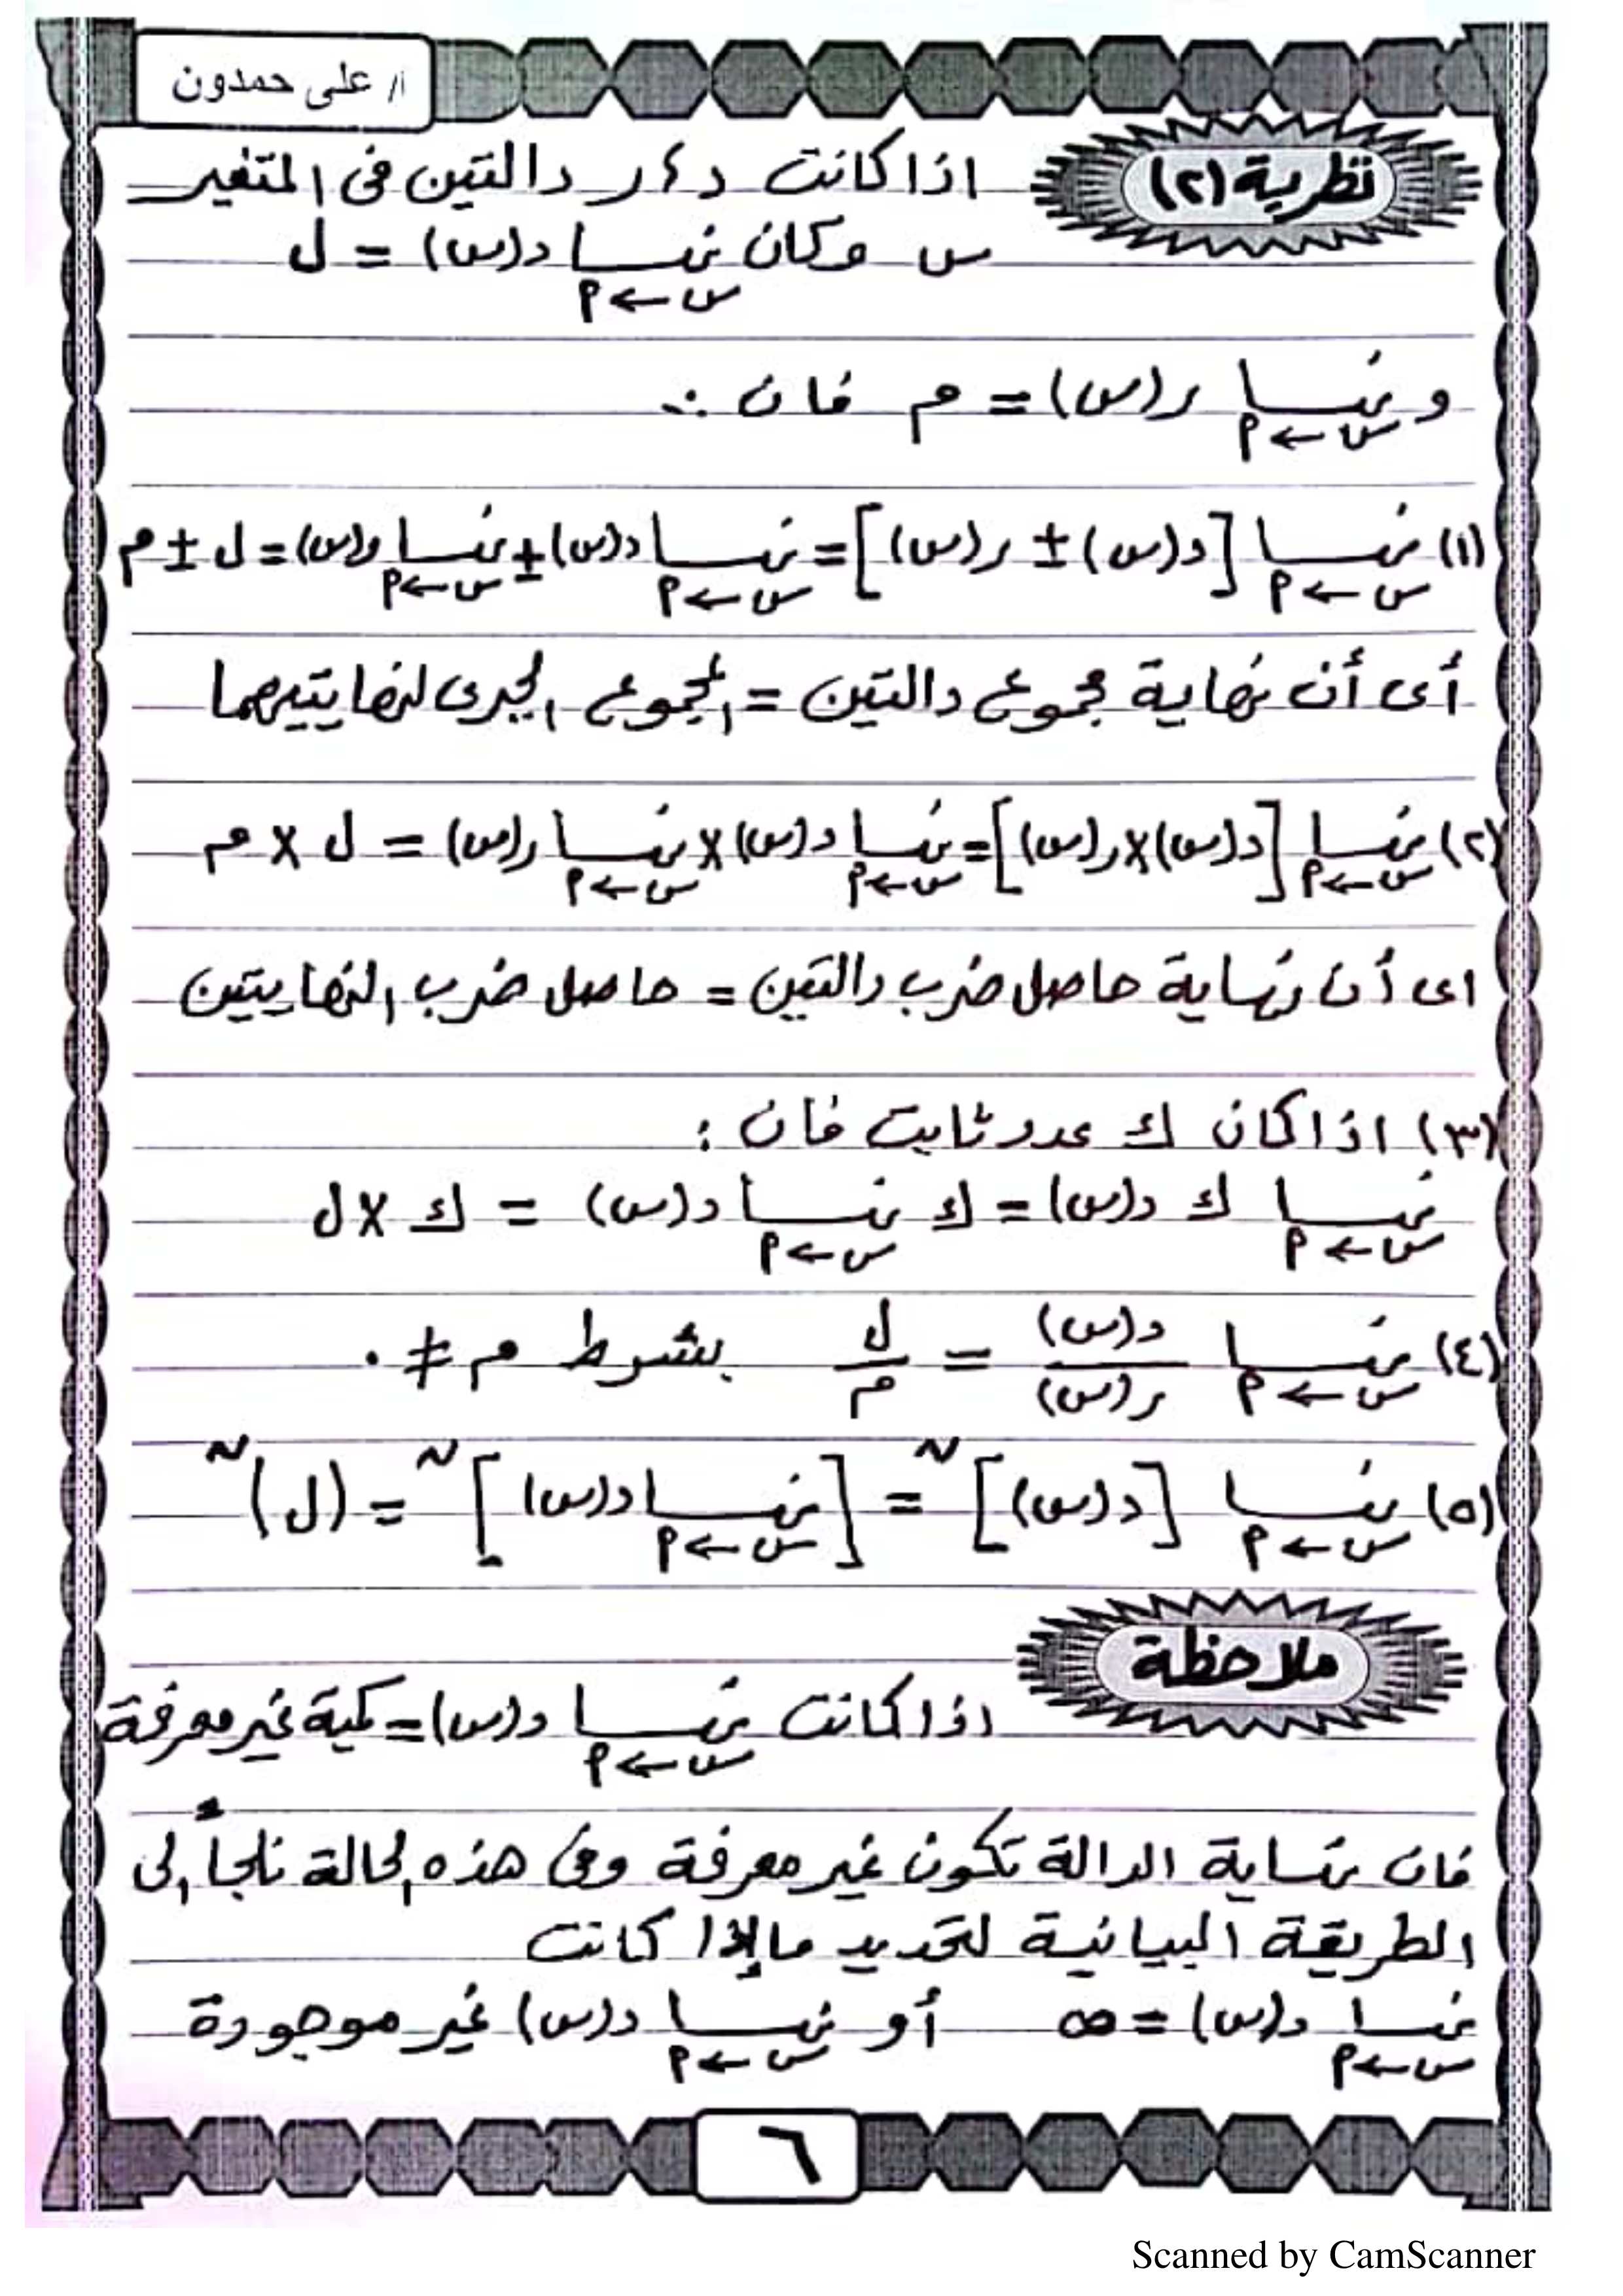 أ/ على حمدون
نظرية (٢)
اذا كانت د ، ر دالتين فى المتغير
س وكان نهــا د(س) = ل
س ← ٩
و نهــا ر(س) = م فان :-
س ← ٩
(١) نهــا [د(س) ± ر(س)] = نهــا د(س) ± نهــا ر(س) = ل ± م
س ← ٩ س ← ٩ س ← ٩
أى أن نهاية مجموع دالتين = المجموع الجبرى لنهايتيهما
(٢) نهــا [د(س) × ر(س)] = نهــا د(س) × نهــا ر(س) = ل × م
س ← ٩ س ← ٩ س ← ٩
اى أن نهاية حاصل ضرب دالتين = حاصل ضرب النهايتين
(٣) اذا كان ك عدد ثابت فان :
نهــا ك د(س) = ك نهــا د(س) = ك × ل
س ← ٩ س ← ٩
(٤) نهــا د(س) / ر(س) = ل / م بشرط م ≠ ٠
س ← ٩
(٥) نهــا [د(س)]ن = [نهــا د(س)]ن = (ل)ن
س ← ٩ س ← ٩
ملاحظة
اذا كانت نهــا د(س) = كمية غير معرفة
س ← ٩
فان نهاية الدالة تكون غير معرفة وفى هذه الحالة نلجأ إلى
الطريقة البيانية لتحديد ما إذا كانت
نهــا د(س) = ∞ أو نهــا د(س) غير موجودة
س ← ٩ س ← ٩
٦
Scanned by CamScanner